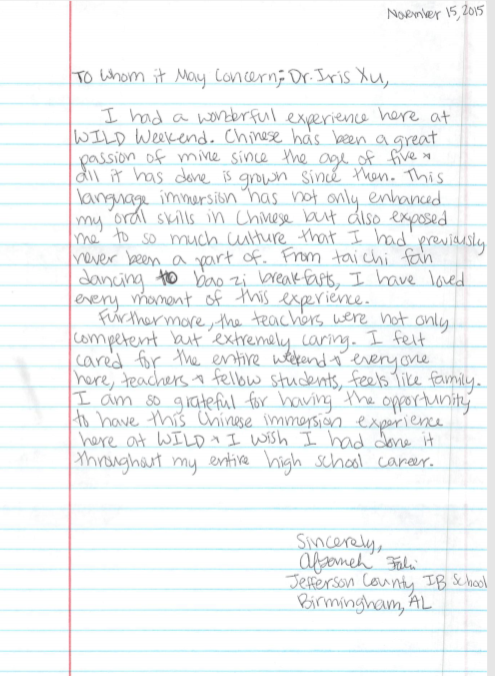 November 15, 2015
To Whom it May Concern; Dr. Iris Xu,
I had a wonderful experience here at
WILD Weekend. Chinese has been a great
passion of mine since the age of five &
all it has done is grown since then. This
language immersion has not only enhanced
my oral skills in Chinese but also exposed
me to so much culture that I had previously
never been a part of. From tai chi fan
dancing to bao zi breakfasts, I have loved
every moment of this experience.
Furthermore, the teachers were not only
competent but extremely caring. I felt
cared for the entire weekend & everyone
here, teachers & fellow students, feels like family.
I am so grateful for having the opportunity
to have this Chinese immersion experience
here at WILD & I wish I had done it
throughout my entire high school career.
Sincerely,
Afsaneh
Jefferson County IB School
Birmingham, AL